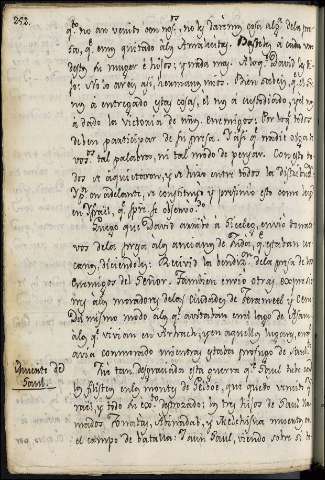 252.
q.e no an venido con nos.s, no les daremos cosa alg.a de la pre-
sa, q.e emos quitado a los Amalecitas. Basteles a cada uno
destos su muger é hijos; y nada mas. A lo q.e David les di-
jo: No lo areis asi, hermanos mios. Bien sabeis, q.e el S.or
nos á entregado estas cosas, el nos á custodiado, y el nos
á dado la victoria de nros. enemigos: Por lo q.e todos
deben participar de su presa. Y asi q.e nadie oiga de
vos.s tal palabra, ni tal modo de pensar. Con esto to-
dos se aquietaron, y se hizo entre todos la distribucion.
Y p.r en adelante, se constituyó y prefinio esto como ley
en Ysrael, q.e spre. se observó.
Luego que David arribó á Siceleg, envió donati-
vos de la presa a los ancianos de Judá, q.e estaban cer-
canos, diciendoles: Recivid la bendi.on de la presa de los
enemigos del Señor. Tambien envio otras expresio-
nes a los moradores de las Ciudades de Jerameel y Ceni.
Del mismo modo a los q.e avitaban en el lago de Asan;
a los q.e vivian en Athach; y en aquellos lugares, en q.e
avia conmorado mientras estubo profugo de Saul.
Muerte de
Saul.
Fue tan desgraciada esta guerra q.e Saul tubo con
los Filisteos en los montes de Gelboe, que quedó vencido Ys-
rael, y todo su exo. destrozado: los tres hijos de Saul lla-
mados Jonatas, Abinadab, y Melchisua muertos en
el campo de batalla: Saul, viendo sobre si to-